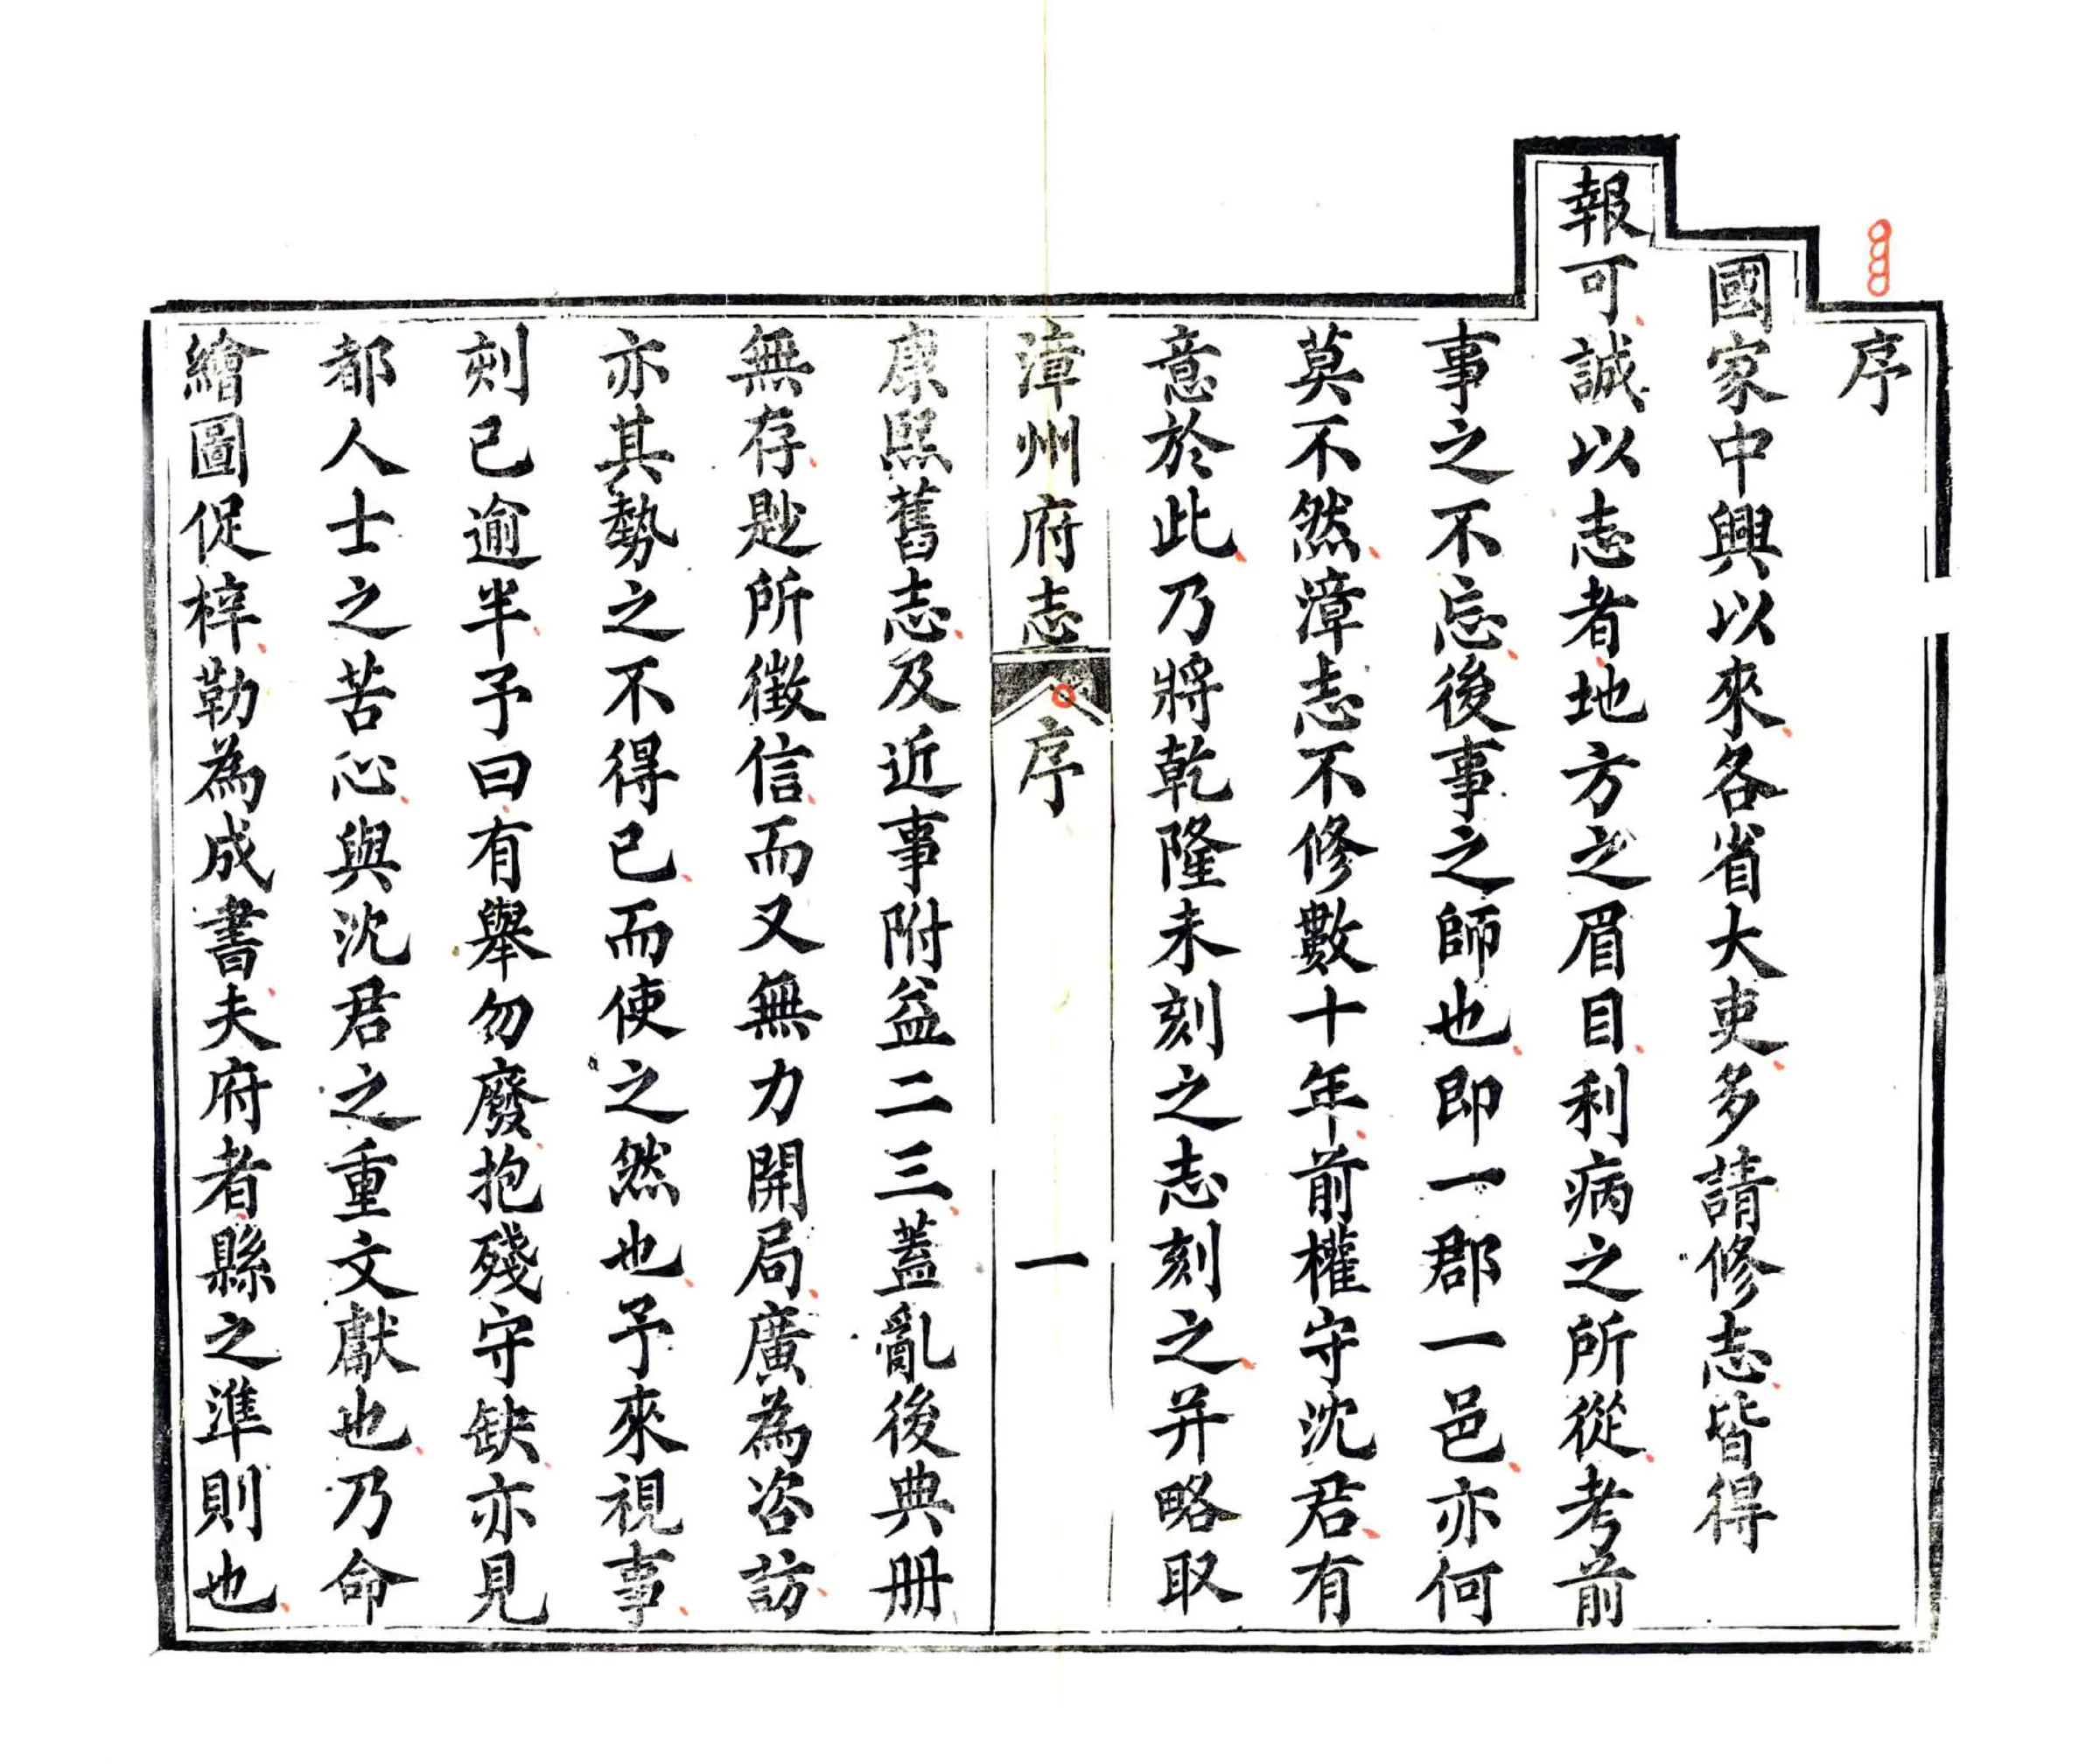 序
國家中興以來各省大吏多請修志皆得
報可誠以志者地方之眉目利病之所從考前
事之不忘後事之師也即一郡一邑亦何
莫不然漳志不修數十年前權守沈君有
意於此乃將乾隆未刻之志刻之并略取
漳州府志 序 一
康熙舊志及近事附益二三蓋亂後典册
無存尟所徵信而又無力開局廣為咨訪
亦其勢之不得已而使之然也予來視事
刻已逾半予曰有舉勿廢抱殘守缺亦見
都人士之苦心與沈君之重文獻也乃命
繪圖促梓勒為成書夫府者縣之準則也